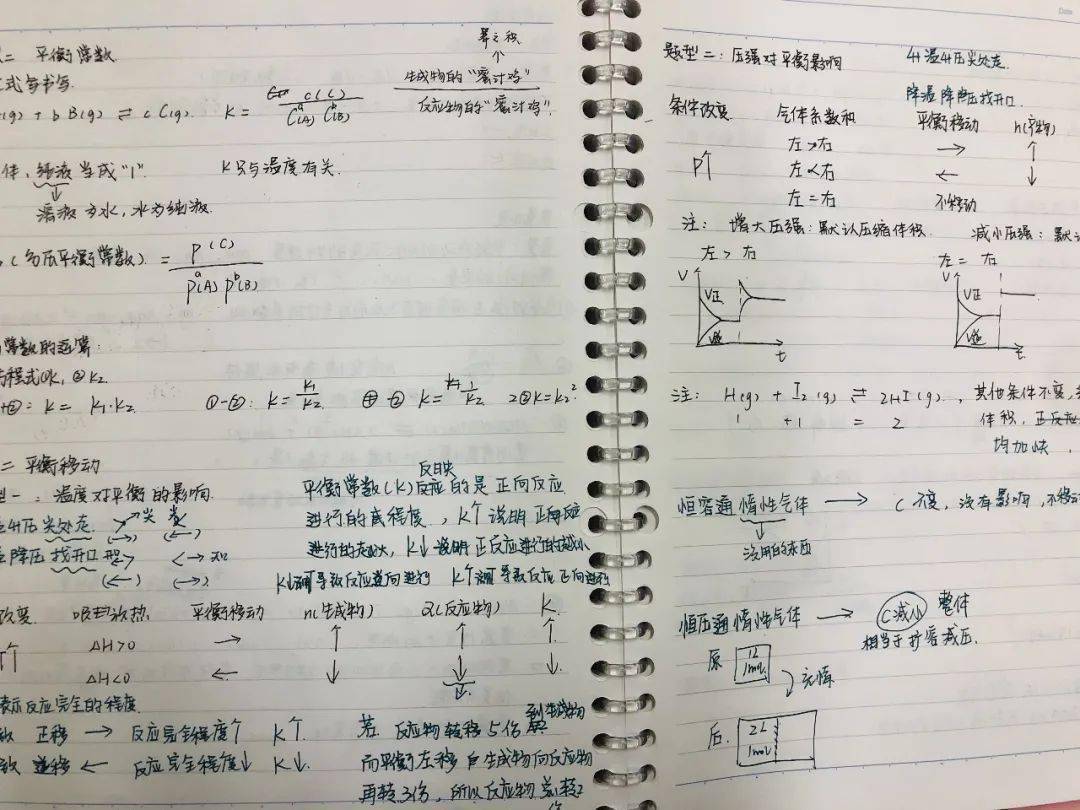 二 平衡常数
式与书写
(g) + bB(g) ⇌ cC(g). K = c(C) / c^a(A) c^b(B)
幂之积
↑
生成物的"幂计积"
反应物的"幂计积"
体、纯液当成"1". K只与温度有关.
↓
溶液为水,水为纯液.
(分压平衡常数) = P(C) / P^a(A) P^b(B)
常数的运算:
方程式①K₁ ②K₂
+②: K = K₁·K₂ ①-②: K = K₁/K₂ 2②K=K₂²
二 平衡移动
型一:温度对平衡的影响.
升压尖处走
降压找开口
反映
平衡常数(K)反应的是正向反应
进行的底程度,K↑说明正向反应
进行的越大,K↓说明正反应进行的越小
改变 吸热放热 平衡移动 n(生成物) α(反应物) K
T↑ ΔH>0 → ↑ ↑ ↑
ΔH<0 ← ↓ ↓ ↓
表示反应完全的程度.
正移 → 反应完全程度↑ K↑
逆移 ← 反应完全程度↓ K↓
若 反应物转移5份到生成物
而平衡左移 由生成物向反应物
再转3份,所以反应物总转2
份
Date
题型二:压强对平衡影响 升温升压尖处走.
降温降压找开口
条件改变 气体系数和 平衡移动 n(产物)
左>右 → ↑
P↑ 左<右 ← ↓
左=右 不移动
注: 增大压强:默认压缩体积. 减小压强:默认
左 > 右 左 = 右
V V正 V逆 t V V正 V逆 t
注: H₂(g) + I₂(g) ⇌ 2HI(g), 其他条件不变,
1 + 1 = 2 体积,正反应
均加快,
恒容通惰性气体 → C不变,没有影响,不移动
↓
没用的东西
恒压通惰性气体 → C减小 整体
相当于扩容减压.
原 1L 1mol
充惰
后. 2L 1mol